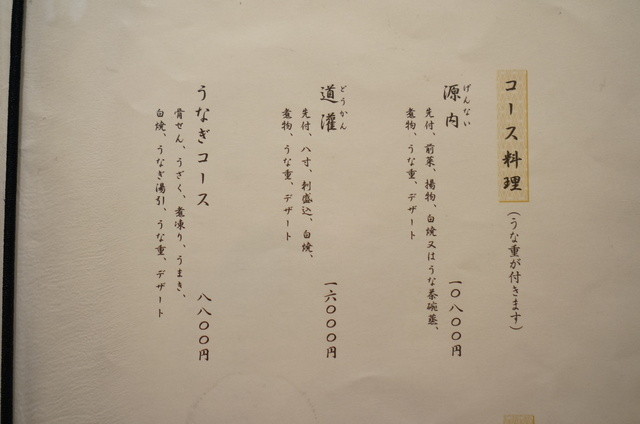 コース料理
(うな重が付きます)
げんない
源内
先付、前菜、揚物、白焼又はうな茶碗蒸、
煮物、うな重、デザート
一〇八〇〇円
どうかん
道灌
先付、八寸、刺盛込、白焼、
煮物、うな重、デザート
一六〇〇〇円
うなぎコース
骨せん、うざく、煮凍り、うまき、
白焼、うなぎ湯引、うな重、デザート
八八〇〇円